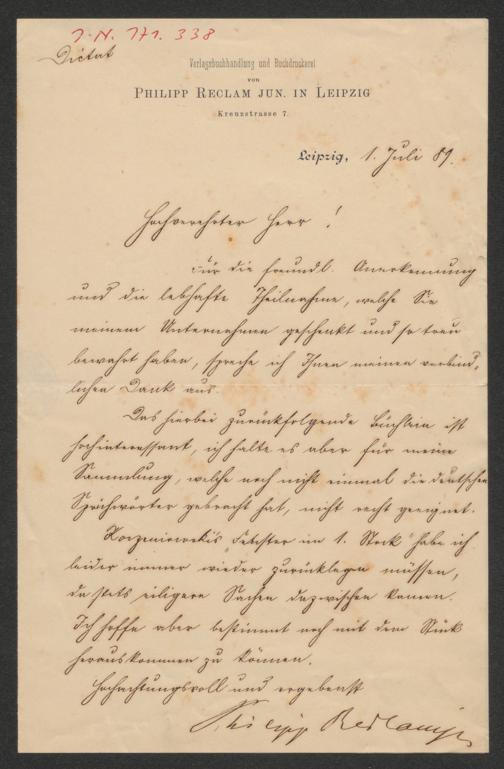 J. N. 171. 338
Dictat
Verlagsbuchhandlung und Buchdruckerei
VON
PHILIPP RECLAM JUN. IN LEIPZIG
Kreuzstrasse 7.
Leipzig, 1. Juli 89.
Hochverehrter Herr!
Für die freundl. Anerkennung
und die lebhafte Theilnahme, welche Sie
meinem Unternehmen geschenkt und so treu
bewahrt haben, spreche ich Ihnen meinen verbind-
lichen Dank aus.
Das hierbei zurückfolgende Büchlein ist
hochinteressant, ich halte es aber für meine
Sammlung, welche noch nicht einmal die deutschen
Sprichwörter gebracht hat, nicht recht geeignet.
Korzeniowskis „Fenster im 1. Stock" habe ich
leider immer wieder zurücklegen müssen,
da stets eiligere Sachen dazwischen kamen.
Ich hoffe aber bestimmt noch mit dem Stück
herauskommen zu können.
Hochachtungsvoll und ergebenst
Philipp Reclam jr.